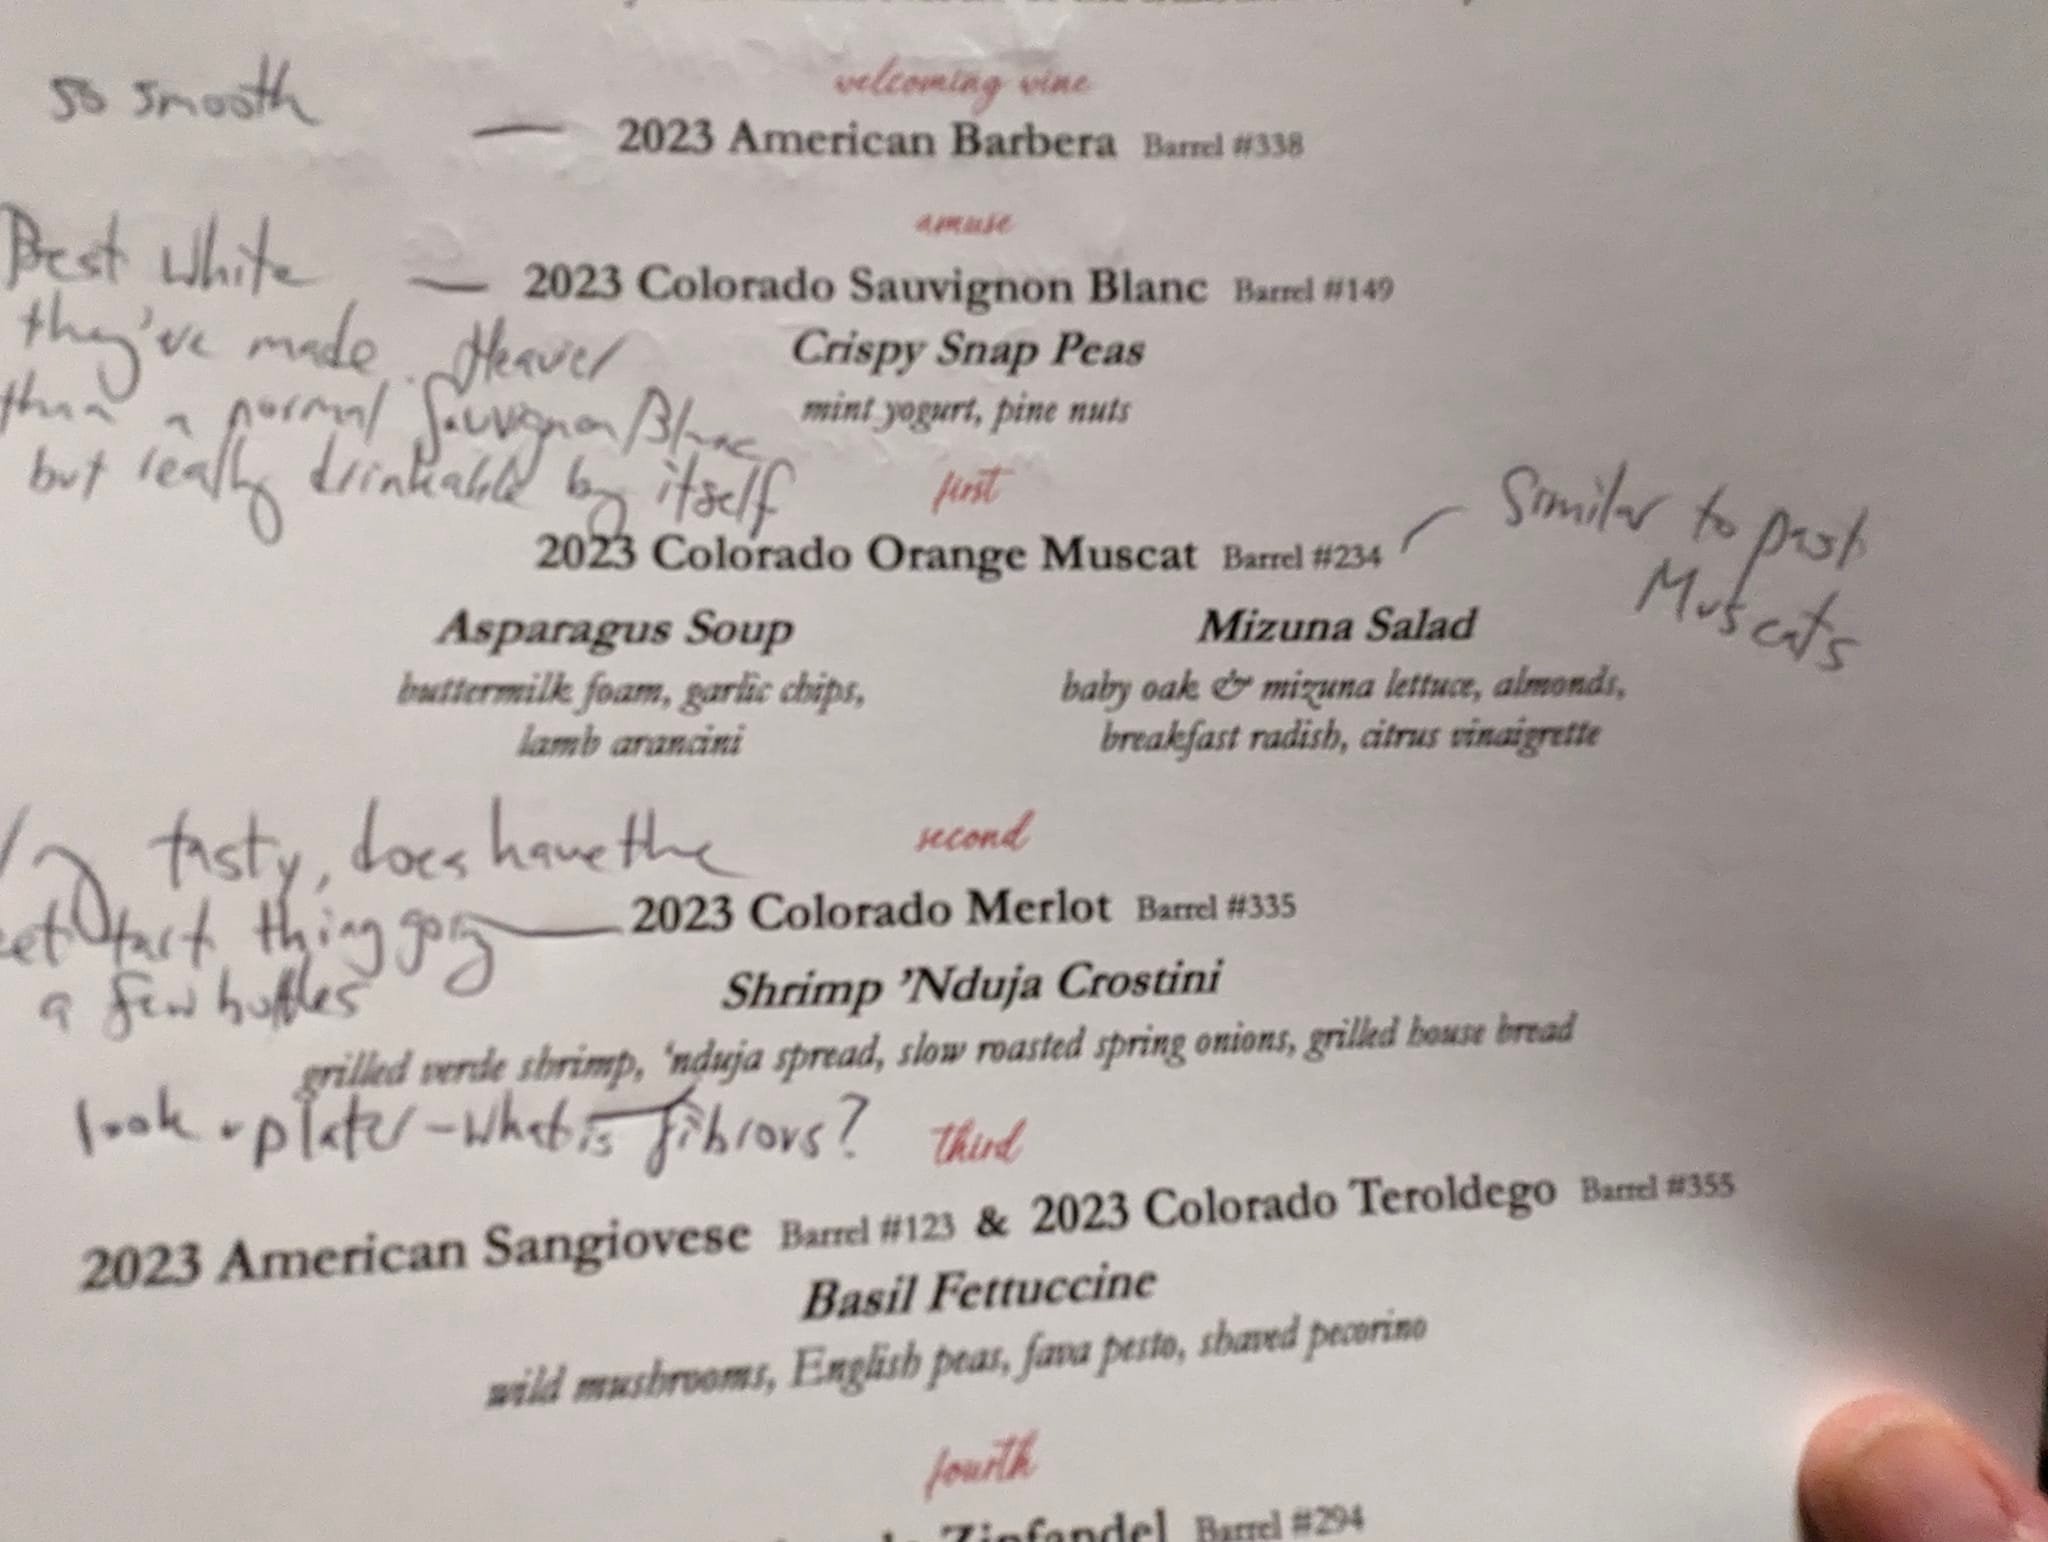 so smooth
welcoming wine
2023 American Barbera Barrel #338
amuse
Best White
2023 Colorado Sauvignon Blanc Barrel #149
they've made. Heavier
than a normal Sauvignon Blanc
but really drinkable by itself
Crispy Snap Peas
mint yogurt, pine nuts
first
2023 Colorado Orange Muscat Barrel #234
Similar to past
Muscats
Asparagus Soup
buttermilk foam, garlic chips,
lamb arancini
Mizuna Salad
baby oak & mizuna lettuce, almonds,
breakfast radish, citrus vinaigrette
tasty, does have the
tart thing going
a few bottles
second
2023 Colorado Merlot Barrel #335
Shrimp 'Nduja Crostini
grilled verde shrimp, 'nduja spread, slow roasted spring onions, grilled house bread
look up later - What is fibrous?
third
2023 American Sangiovese Barrel #123 & 2023 Colorado Teroldego Barrel #355
Basil Fettuccine
wild mushrooms, English peas, fava pesto, shaved pecorino
fourth
Zinfandel Barrel #294